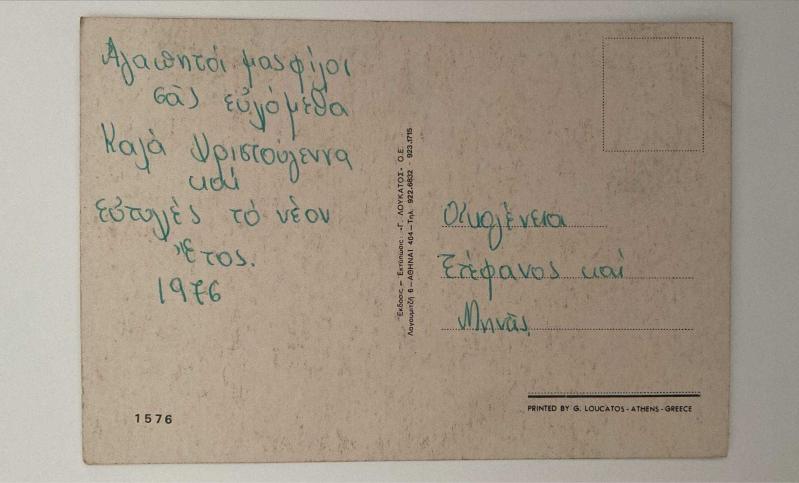 Αγαπητοί μας φίλοι
σᾶς εὐχόμεθα
Καλά Χριστούγεννα
καί
εὐτυχές τό νέον
Ἔτος.
1976
1576
Ἔκδοσις – Ἐκτύπωσις: «Γ. ΛΟΥΚΑΤΟΣ» Ο.Ε.
Λαγουμιτζῆ 6 – ΑΘΗΝΑΙ 404 – Τηλ. 922.6832 - 923.1715
Οἰκογένεια
Στέφανος καί
Μηνᾶς
PRINTED BY G. LOUCATOS - ATHENS - GREECE